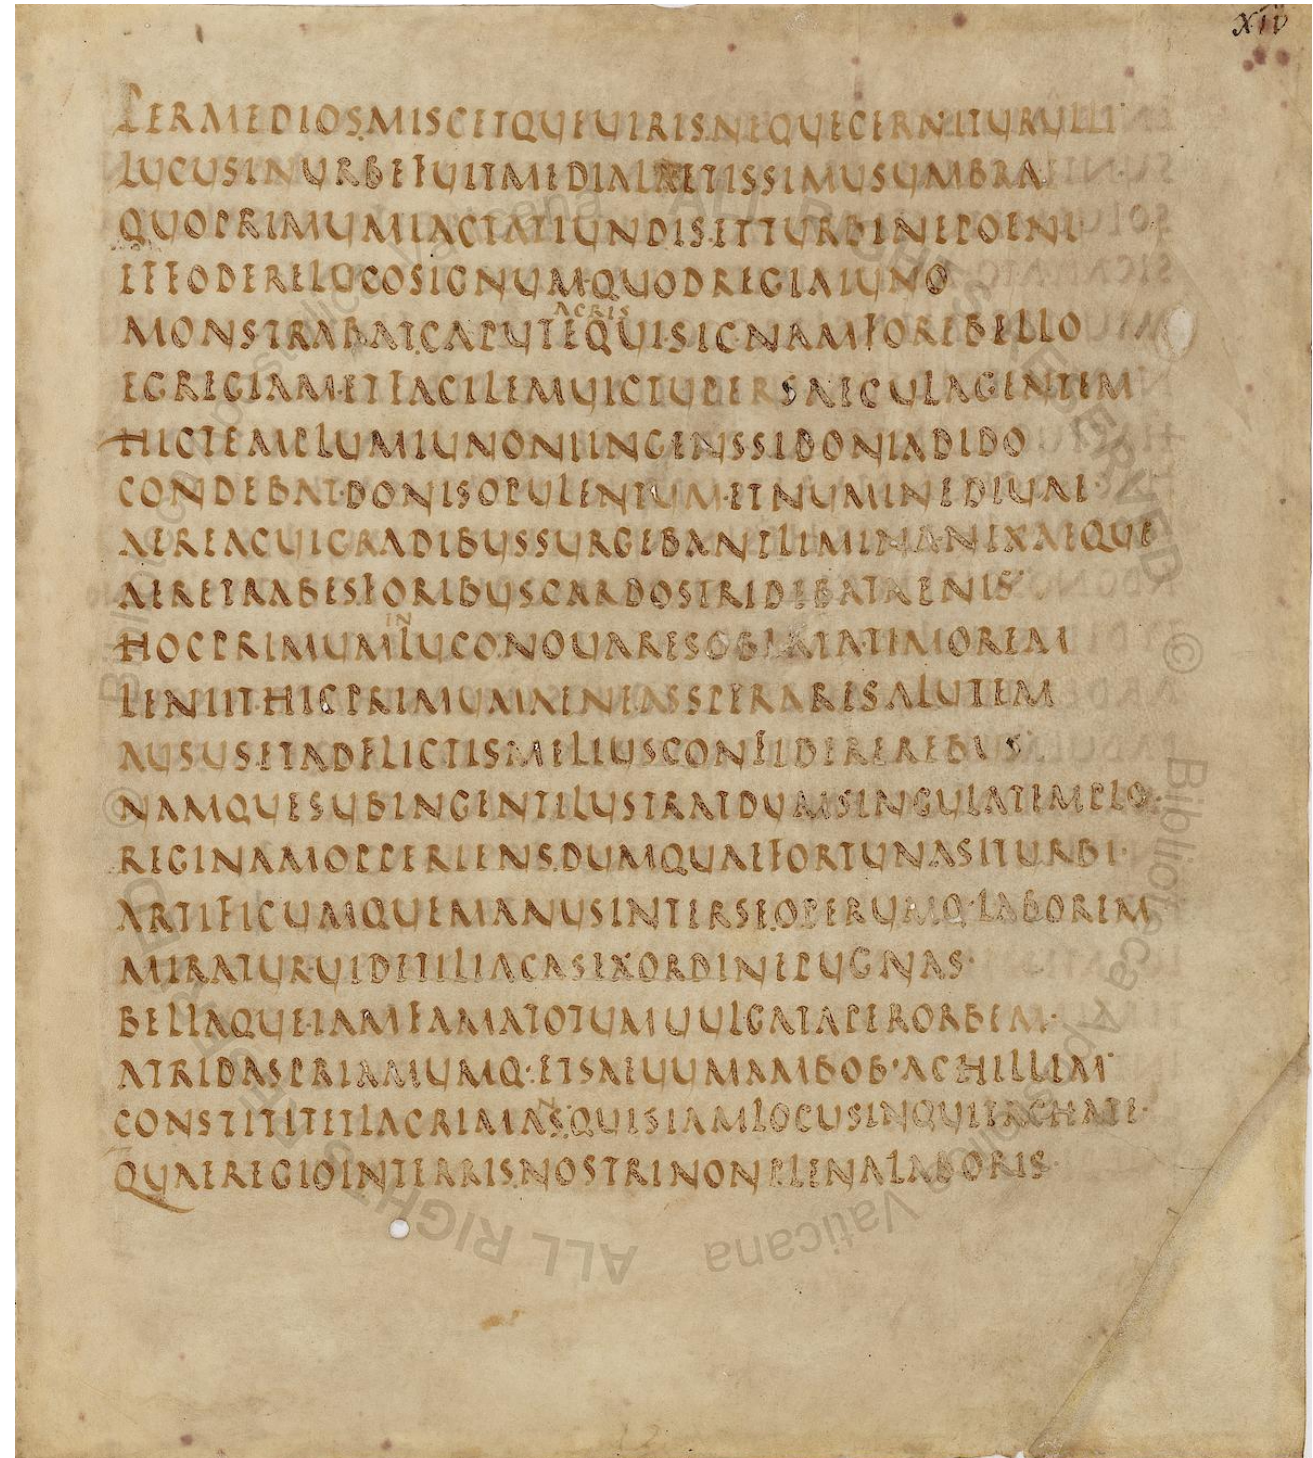 XIV
PERMEDIOS.MISCETQUEUIRIS.NEQUECERNITURULLI·
LUCUSINURBEFUITMEDIALAETISSIMUSUMBRA
QUOPRIMUMIACTATIUNDIS.ETTURBINEPOENI
EFFODERELOCOSIGNUM·QUODREGIAIUNO
ACRIS
MONSTRABAT.CAPUTEQUI·SIC·NAMFOREBELLO
EGREGIAM·ETFACILEMUICTUPERSAECULAGENTEM
HICTEMPLUMIUNONIINGENSSIDONIADIDO
CONDEBAT·DONISOPULENTUM·ETNUMINEDIUAE·
AEREACUIGRADIBUSSURGEBANTLIMINANIXAEQUE
AERETRABESFORIBUSCARDOSTRIDEBATAENIS·
IN
HOCPRIMUMLUCONOUARESOBLATATIMOREM
LENIIT·HICPRIMUMAENEASSPERARESALUTEM
AUSUS.ETADFLICTISMELIUSCONFIDEREREBUS
NAMQUESUBINGENTILUSTRATDUMSINGULATEMPLO·
REGINAMOPPERIENS.DUMQUAEFORTUNASITURBI·
ARTIFICUMQUEMANUSINTERSE.OPERUMQ·LABOREM
MIRATUR·UIDETILIACASEXORDINEPUGNAS·
BELLAQUE·IAMFAMATOTUMUULGATAPERORBEM·
ATRIDASPRIAMUMQ·ETSAEUUMAMBOB·ACHILLEM·
N
CONSTITITETLACRIMAS.QUISIAMLOCUSINQUITACHATE·
QUAEREGIOINTERRIS.NOSTRINONPLENALABORIS·
© Biblioteca Apostolica Vaticana ALL RIGHTS RESERVED
© Biblioteca Apostolica Vaticana ALL RIGHTS RESERVED